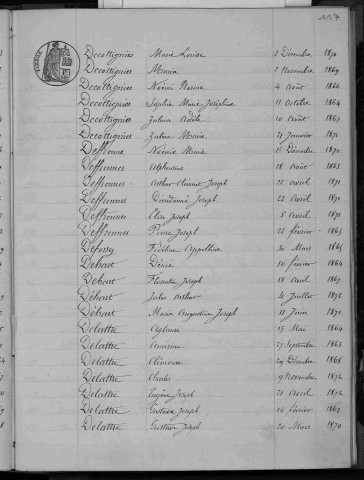 117
Decottignies Marie Louise 2 Décembre 1870
Decottignies Maria 2 Novembre 1869
Decottignies Noémie 4 Août 1866
Decottignies Sophie Marie Joséphine 11 Octobre 1864
Decottignies Zulma Adèle 10 Août 1867
Decottignies Zulma Maria 21 Janvier 1871
Deffrennes Noémie Marie 15 Décembre 1870
Deffrennes Alphonse 18 Août 1863
Deffrennes Arthur Clément Joseph 21 Avril 1871
Deffrennes Dieudonné Joseph 22 Avril 1871
Deffrennes Elise Joseph 3 Avril 1871
Deffrennes Pierre Joseph 22 février 1865
Defossez Fidéline Appolline 30 Mars 1865
Dehort Désiré 10 février 1864
Dehort Florentin Joseph 18 Avril 1869
Dehort Jules Arthur 4 Juillet 1872
Dehort Marie Augustine Joseph 11 Juin 1871
Delattre Aglaure 13 Mai 1864
Delattre 27 Septembre 1863
Delattre Clémence 29 Décembre 1868
Delattre Charles 9 Novembre 1872
Delattre Eugène Joseph 21 Avril 1872
Delattre Gustave Joseph 14 février 1867
Delattre Gustave Joseph 20 Mars 1870